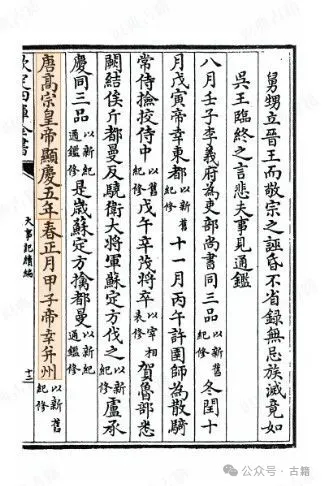 舅甥立晉王而敬宗之誣昏不省録無忌族滅竟如
吳王臨終之言悲夫事見通鑑
八月壬子李義府為吏部尚書同三品以新紀修冬閏十
月戊寅帝幸東都以舊紀修十一月丙午許圉師為散騎
常侍撿挍侍中以舊紀修戊午辛茂将卒以宰相表修賀魯部悉
闕結俟斤都曼反驍衛大將軍蘇定方伐之以新紀修盧承
慶同三品以新紀通鑑修是歲蘇定方擒都曼以新紀通鑑修
唐高宗皇帝顯慶五年春正月甲子帝幸并州以新舊紀修
欽定四庫全書
大事記續編
十三
公众号·古籍